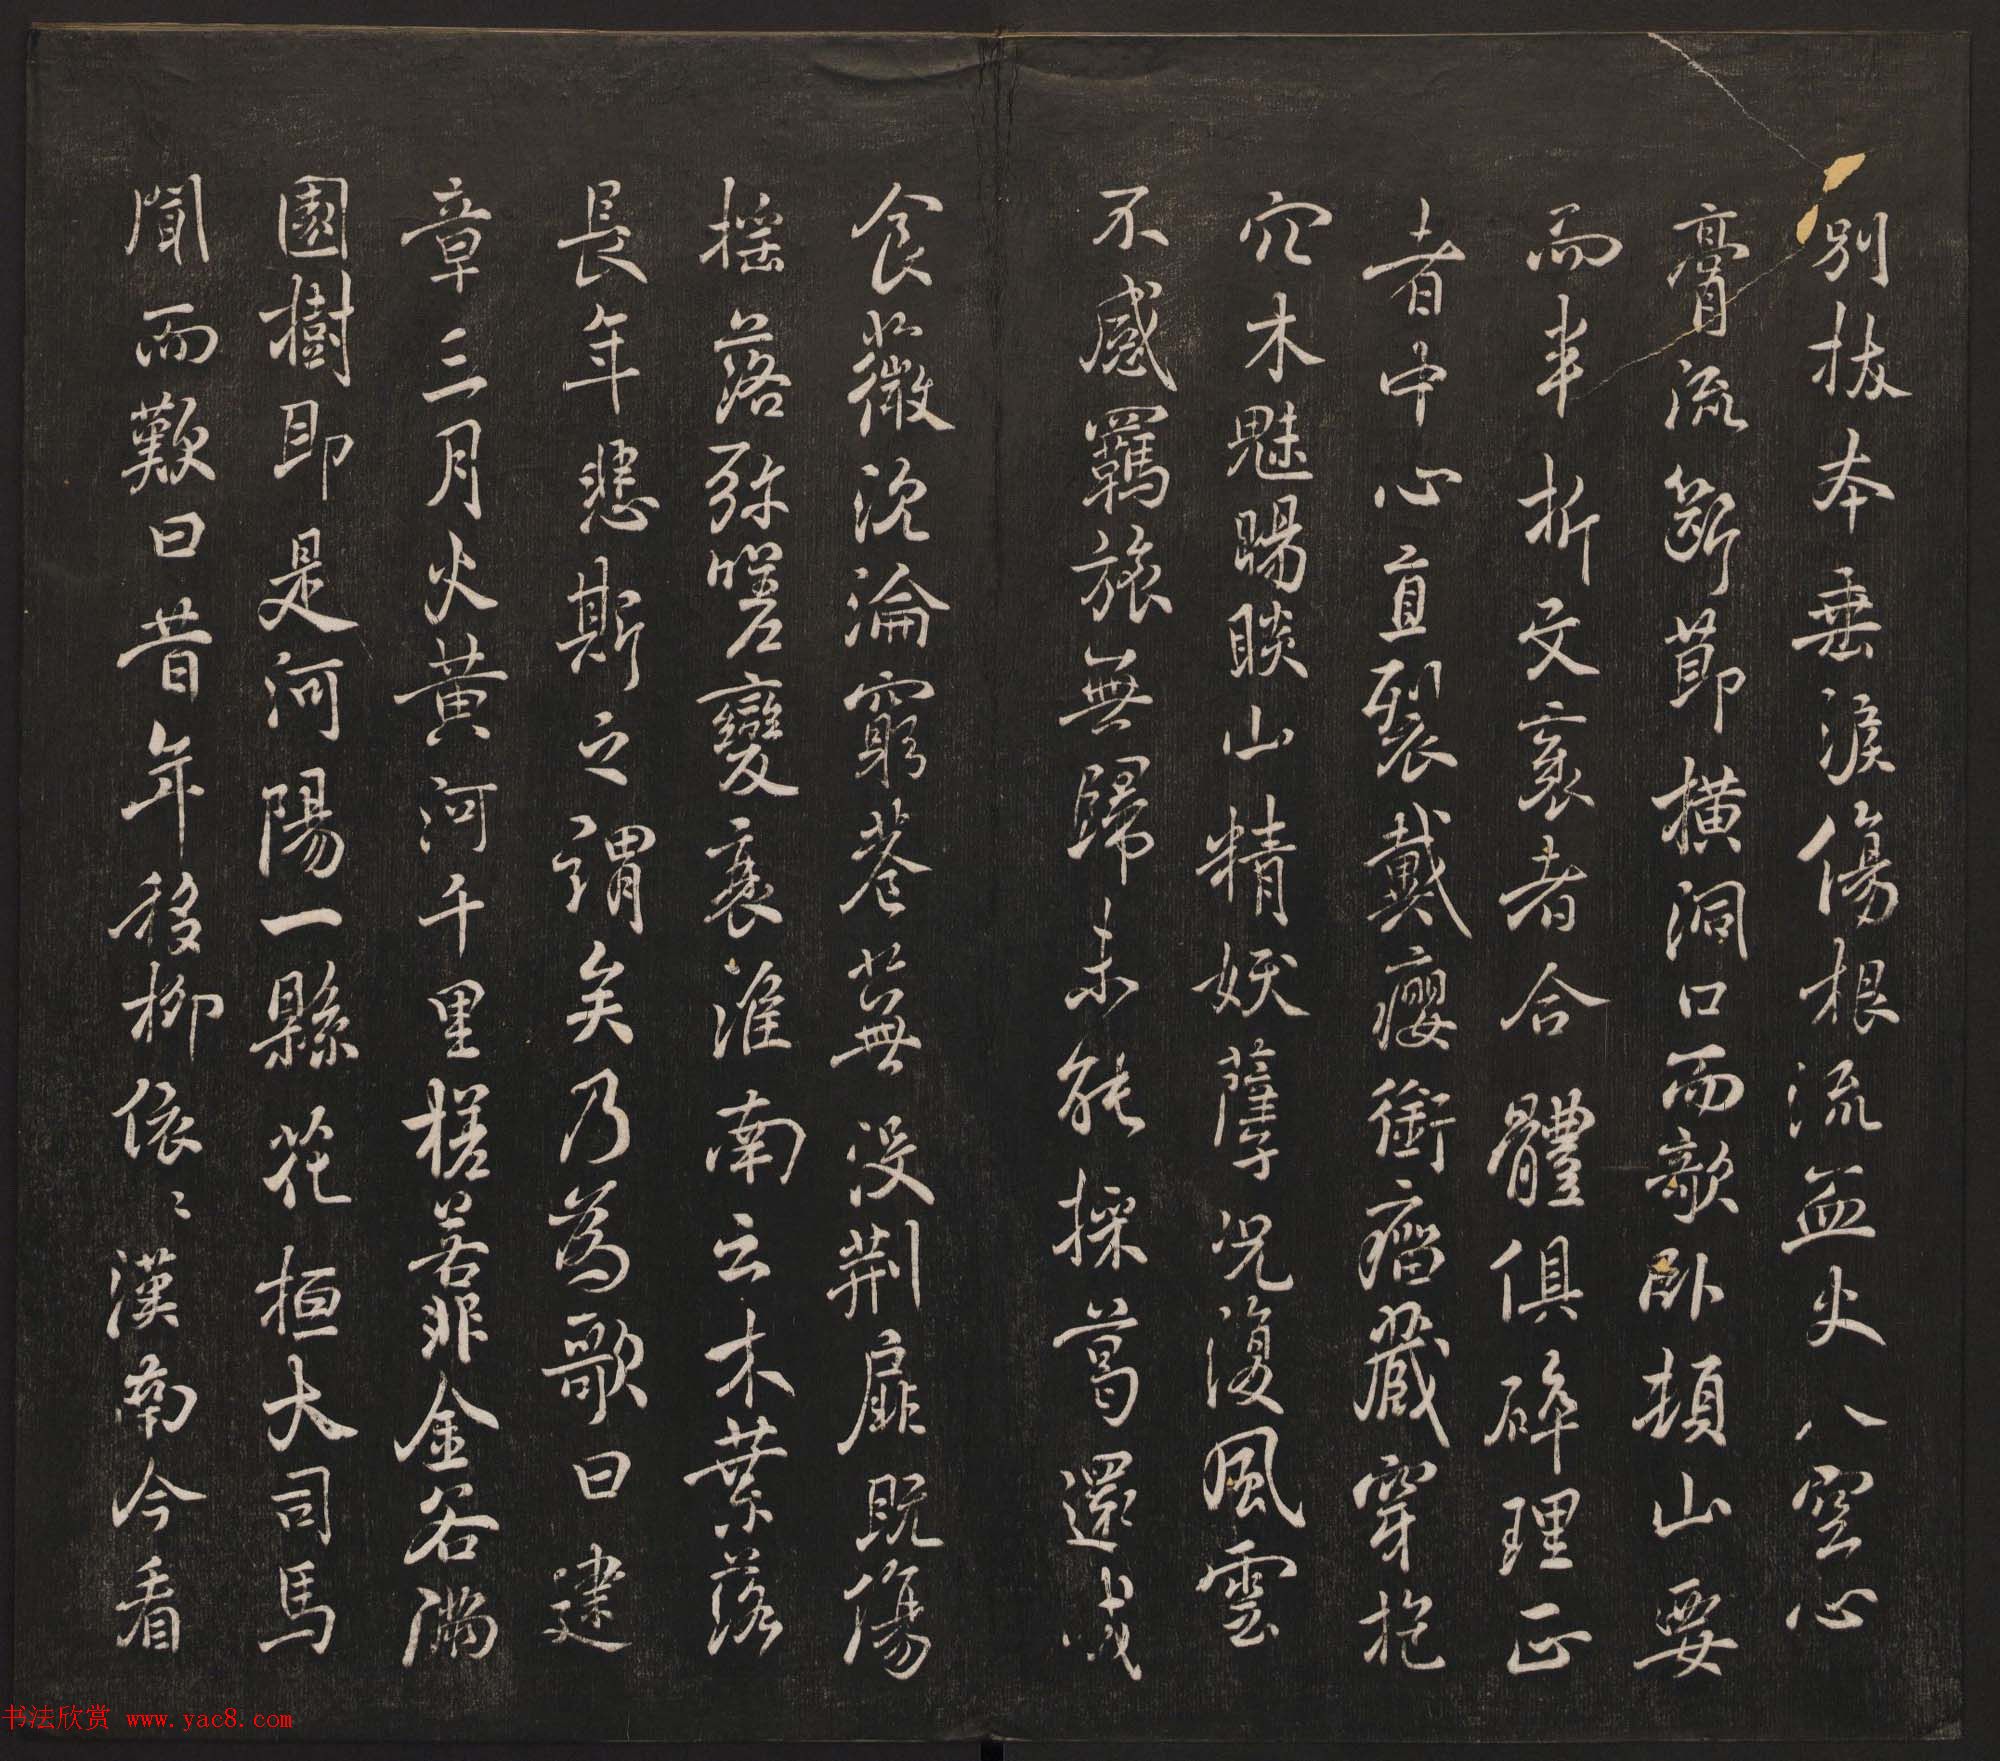 別拔本垂淚傷根流血火入空心
膏流斷節橫洞口而敧臥頓山要
而半折文袤者合體俱碎理正
者中心直裂戴癭銜瘤藏穿抱
穴木魅賜睒山精妖孽况復風雲
不感羈旅無歸未能採葛還成
食薇沉淪窮巷蕪沒荊扉既傷
搖落彌嗟變衰淮南云木葉落
長年悲斯之謂矣乃為歌曰建
章三月火黃河千里槎若非金谷滿
園樹即是河陽一縣花桓大司馬
聞而歎曰昔年移柳依〻漢南今看
书法欣赏 www.yac8.com